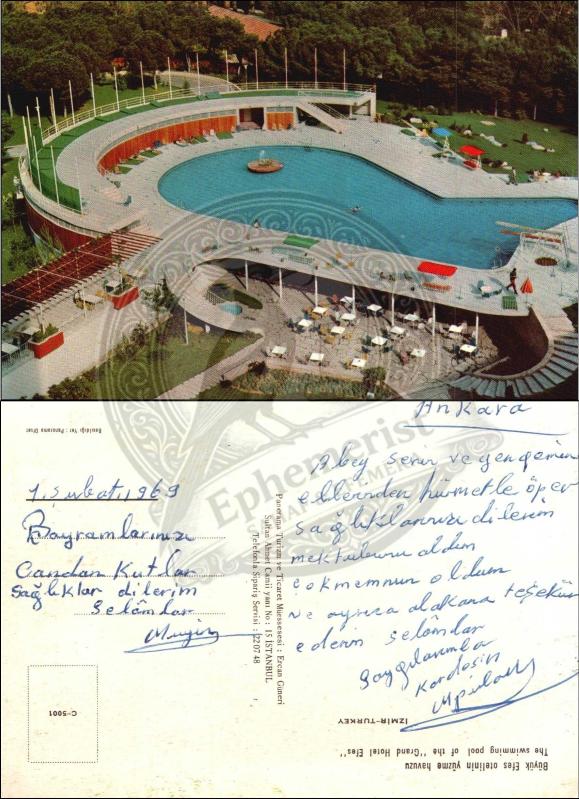 Ankara
Abey senin ve yengemin
ellerinden hürmetle öper
sağlıklarınızı dilerim
mektubunu aldım
çokmemnun oldum
ve ayrıca alakana teşekür
ederim selâmlar
Saygılarımla
Kardeşin
1.şubat.1969
Bayramlarınızı
Candan Kutlar
sağlıklar dilerim
selâmlar
Panorama Turizm ve Ticaret Müessesesi : Ercan Güneri
Sultan Ahmet Camii yanı No : 15 İSTANBUL
Telefonla Sipariş Servisi : 220748
Basıldığı Yer : Panorama Ofset
C-5001
İZMİR-TURKEY
Büyük Efes otelinin yüzme havuzu
The swimming pool of the "Grand Hotel Efes"
Ephemerist